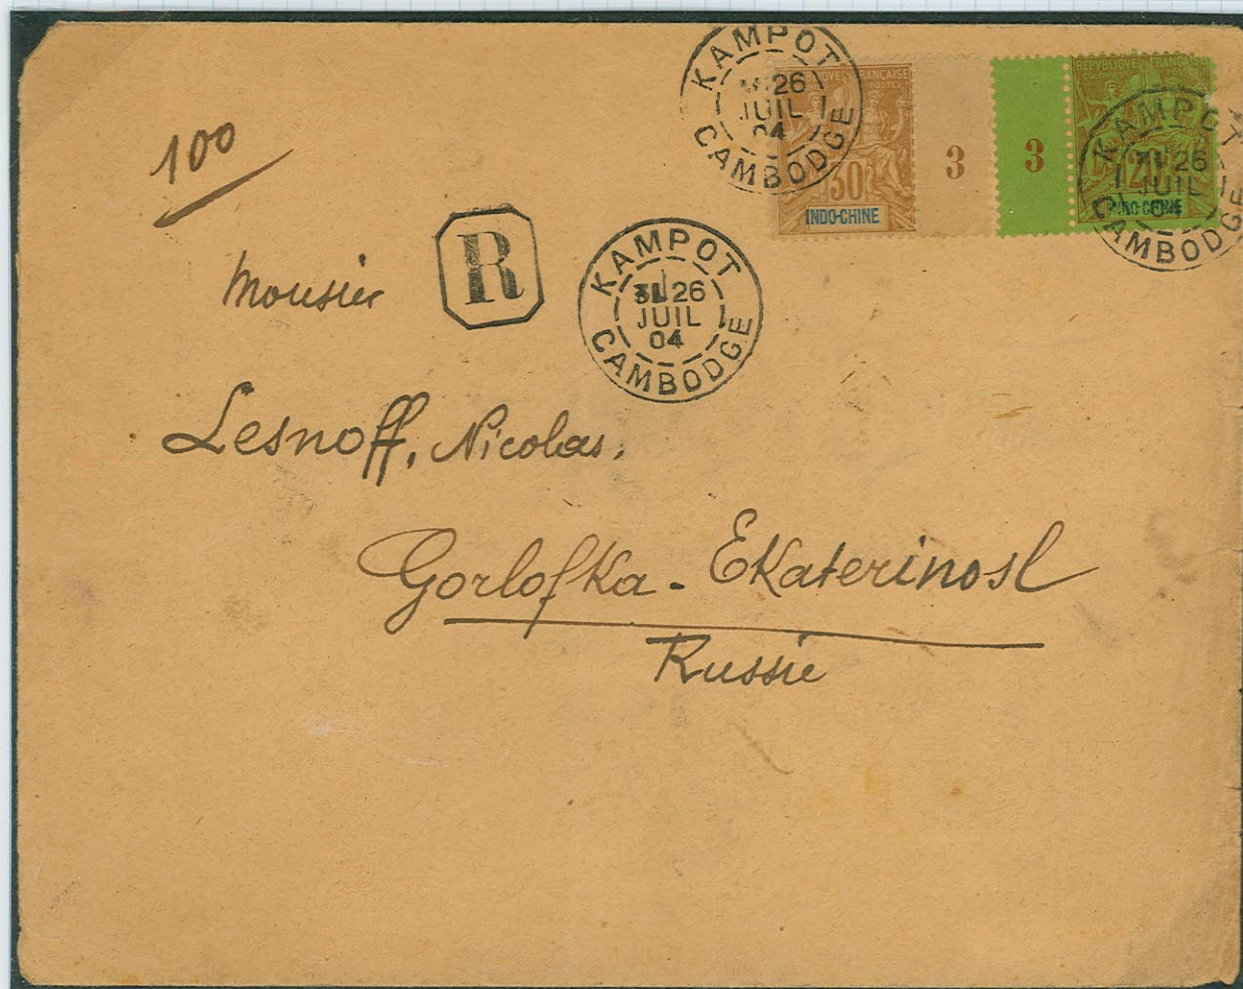 KAMPOT
26
JUIL
04
CAMBODGE
REPUBLIQUE FRANÇAISE
POSTES
50
INDO-CHINE
3
3
REPUBLIQUE FRANÇAISE
COLONIES
20
INDO-CHINE
KAMPOT
26
JUIL
04
CAMBODGE
100
R
KAMPOT
26
JUIL
04
CAMBODGE
Monsieur
Lesnoff, Nicolas,
Gorlofka - Ekaterinosl
Russie